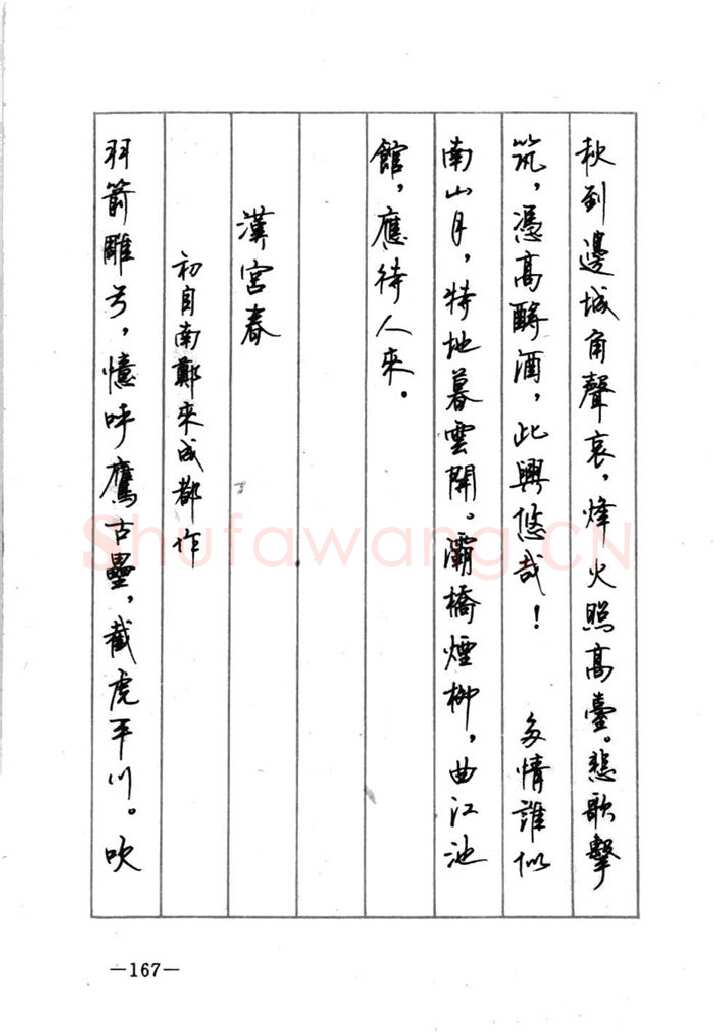 秋到邊城角聲哀，烽火照高臺。悲歌擊
筑，憑高酹酒，此興悠哉！　多情誰似
南山月，特地暮雲開。灞橋煙柳，曲江池
館，應待人來。
漢宮春
初自南鄭來成都作
羽箭雕弓，憶呼鷹古壘，截虎平川。吹
Shufawang.CN
—167—